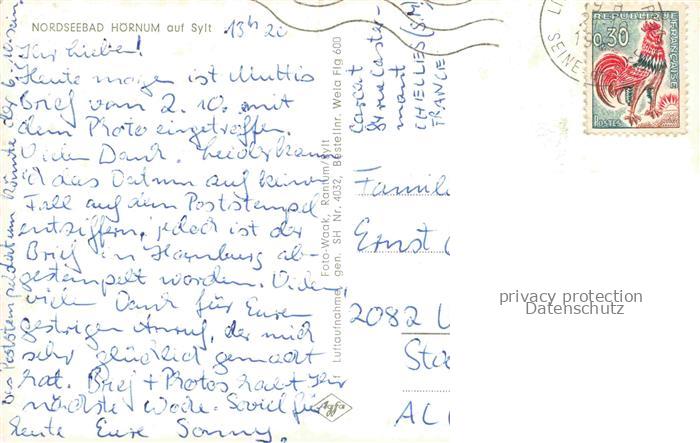 NORDSEEBAD HÖRNUM auf Sylt
13h 20
Ihr Lieben!
Heute morgen ist Muttis
Brief vom 2. 10. mit
dem Photo eingetroffen.
Vielen Dank. Leider kann
ich das Datum auf keinen
Fall auf dem Poststempel
entziffern, jedoch ist der
Brief in Hamburg ab-
gestempelt worden. Vielen,
vielen Dank für Euren
gestrigen Anruf, der mich
sehr glücklich gemacht
hat. Brief + Photos habt Ihr
nächste Woche. Soviel für
heute Eure Sonny.
Das Poststempeldatum könnte der 6. sein
Luftaufnahme gen. SH Nr. 4032, Bestellnr. Welo Flg 600
Foto-Waak, Rantum/Sylt
Agfa
CHELLES (S.M)
FRANCE
Famili
Ernst
2082 U
REPUBLIQUE FRANÇAISE
0,30
POSTES
SEINE
privacy protection
Datenschutz